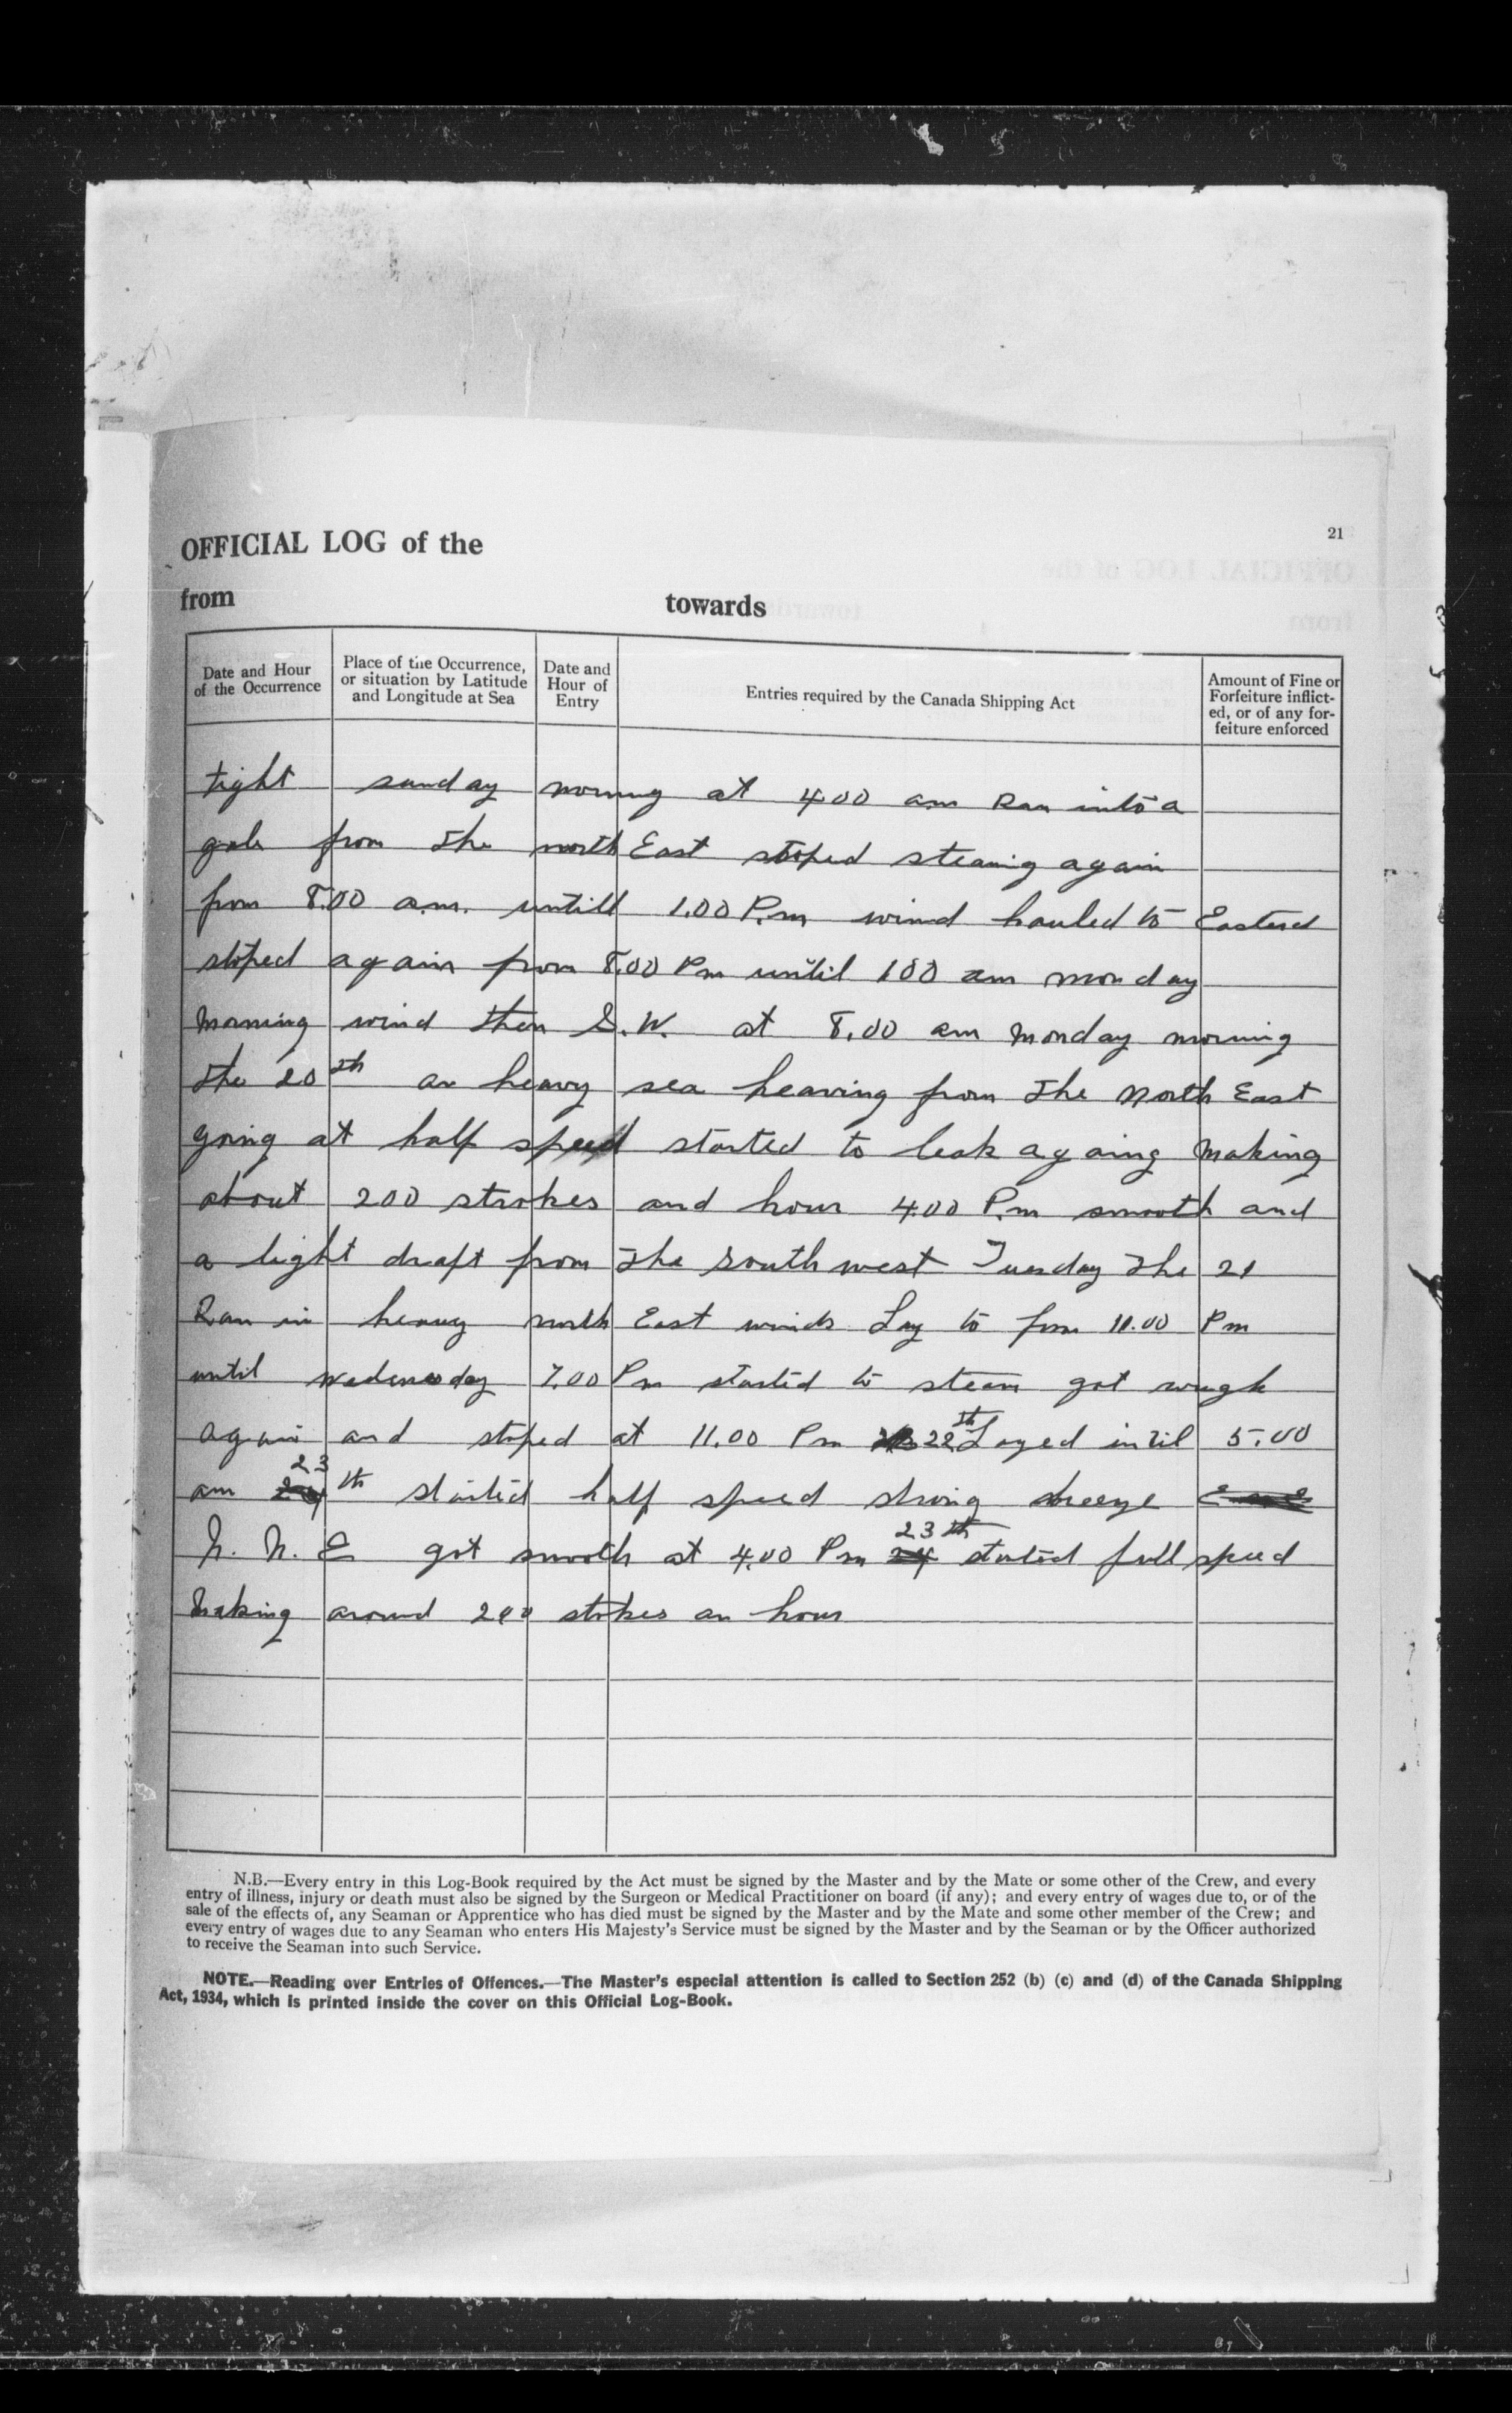 21
OFFICIAL LOG of the
from towards
Date and Hour
of the Occurrence
Place of the Occurrence,
or situation by Latitude
and Longitude at Sea
Date and
Hour of
Entry
Entries required by the Canada Shipping Act
Amount of Fine or
Forfeiture inflict-
ed, or of any for-
feiture enforced
tight sunday morning at 4.00 am Ran into a
gale from the north East stoped steaming again
from 8.00 a.m. untill 1.00 P.m wind hauled to Easterd
stoped again from 8.00 Pm until 1.00 am monday
Morning wind then S.W. at 8.00 am Monday morning
the 20th an heavy sea heaving from the North East
going at half speed started to leak againg Making
about 200 strokes and hour 4.00 P.m smooth and
a light draft from the South west Tuesday the 21
Ran in heavy north East winds Lay to from 11.00 Pm
until wedensday 7.00 Pm started to steam got rough
again and stoped at 11.00 Pm 22th Layed intil 5.00
am 23th started half speed strong breeze
N. N. E got smooth at 4.00 Pm 23th started full speed
Making around 200 stokes an hour
N.B.—Every entry in this Log-Book required by the Act must be signed by the Master and by the Mate or some other of the Crew, and every
entry of illness, injury or death must also be signed by the Surgeon or Medical Practitioner on board (if any); and every entry of wages due to, or of the
sale of the effects of, any Seaman or Apprentice who has died must be signed by the Master and by the Mate and some other member of the Crew; and
every entry of wages due to any Seaman who enters His Majesty's Service must be signed by the Master and by the Seaman or by the Officer authorized
to receive the Seaman into such Service.
NOTE.—Reading over Entries of Offences.—The Master's especial attention is called to Section 252 (b) (c) and (d) of the Canada Shipping
Act, 1934, which is printed inside the cover on this Official Log-Book.